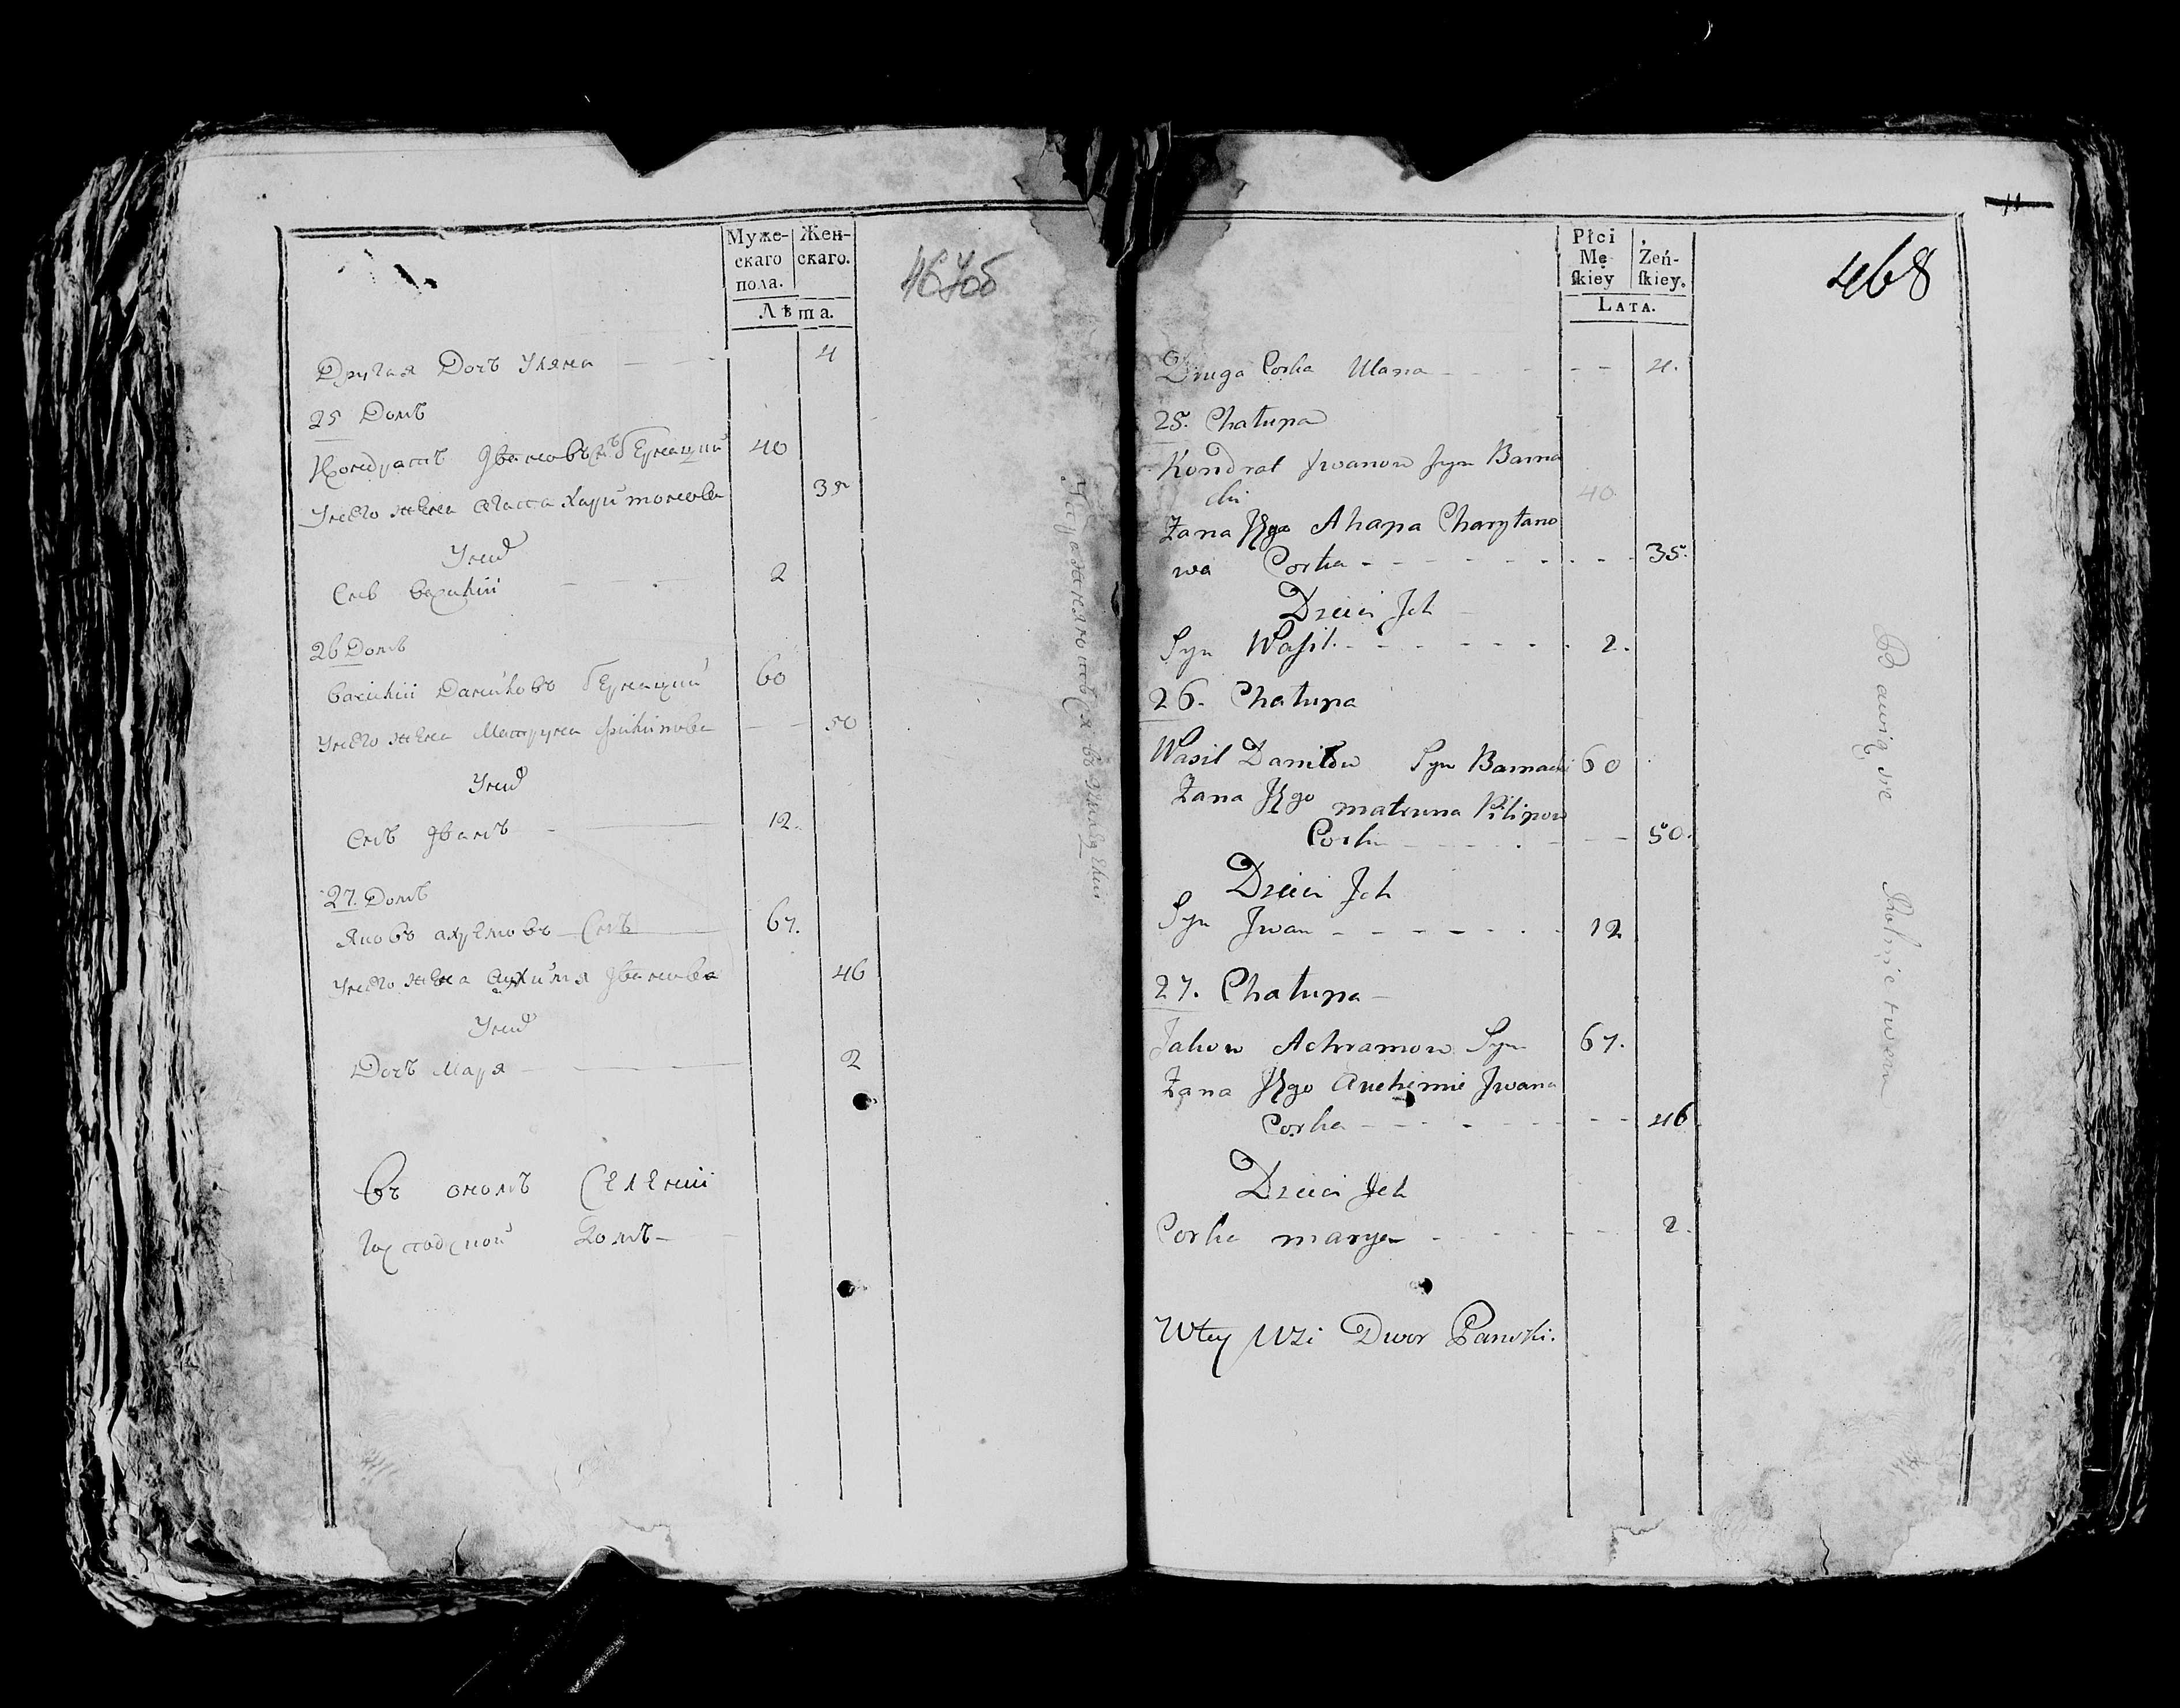 Муже-
скаго
пола.
Жен-
скаго.
Лѣта.
467об
Другая Дочь Уляна 4
25 Домъ
Кондратъ Ивановъ Сынъ 40
Унего жена Хари́тонова 35
Унихъ
Сынъ Василій 2
26 Домъ
Василій Данило́въ 60
Унего жена Матруна Филипова 50
Унихъ
Сынъ Иванъ 12.
27. Домъ
Яковъ Ахремовъ Сынъ 67.
Унего жена Иванова 46
Унихъ
Дочь Маря 2
Въ ономъ Селеніи
Господской Домъ
Упражняются въ земледѣліи
11
468
Płci
Mę-
skiey
Żeń-
skiey.
LATA.
Druga Corka Ulana 4.
25. Chałupa
Kondrat Jwanow Syn Barna
cki 40
Zana Jego Ahapa Charytano
wa Corka 35.
Dzieci Jch
Syn Wasil 2.
26. Chałupa
Wasil Daniłow Syn Barnacki 60
Zana Jego matruna Pilipow
Corka 50.
Dzieci Jch
Syn Jwan 12
27. Chałupa
Jakow Achramow Syn 67.
Zana Jego Auchimie Jwana
Corka 46
Dzieci Jch
Corka marya 2.
Wtey Wzi Dwor Panski.
Bawią sie Rolnictwem